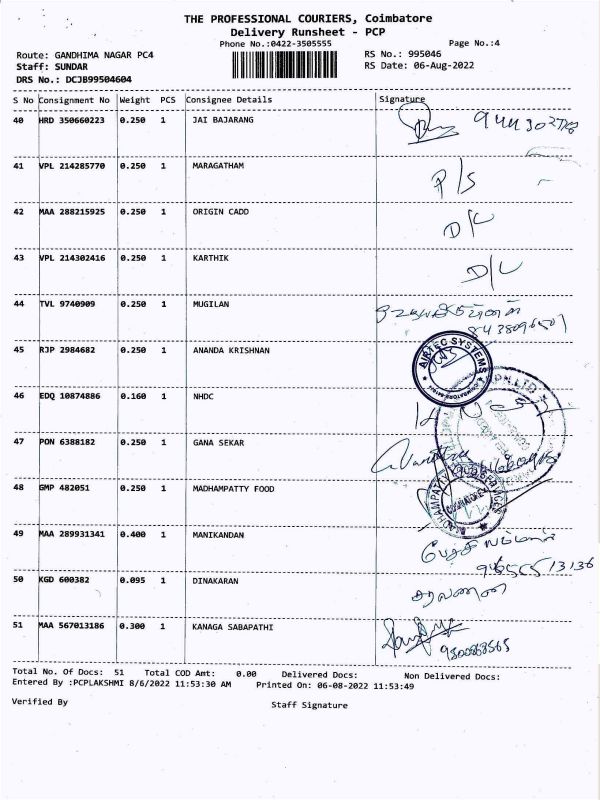 THE PROFESSIONAL COURIERS, Coimbatore
Delivery Runsheet - PCP
Phone No.:0422-3505555 Page No.:4
Route: GANDHIMA NAGAR PC4 RS No.: 995046
Staff: SUNDAR RS Date: 06-Aug-2022
DRS No.: DCJB99504604
S No Consignment No Weight PCS Consignee Details Signature
40 HRD 350660223 0.250 1 JAI BAJARANG
41 VPL 214285770 0.250 1 MARAGATHAM P/S
42 MAA 288215925 0.250 1 ORIGIN CADD D/L
43 VPL 214302416 0.250 1 KARTHIK D/L
44 TVL 9740909 0.250 1 MUGILAN
45 RJP 2984682 0.250 1 ANANDA KRISHNAN
AIRTEC SYSTEMS
46 EDQ 10874886 0.160 1 NHDC
47 PON 6388182 0.250 1 GANA SEKAR
48 GMP 482051 0.250 1 MADHAMPATTY FOOD
49 MAA 289931341 0.400 1 MANIKANDAN
50 KGD 600382 0.095 1 DINAKARAN
51 MAA 567013186 0.300 1 KANAGA SABAPATHI
9500868565
Total No. Of Docs: 51 Total COD Amt: 0.00 Delivered Docs: Non Delivered Docs:
Entered By :PCPLAKSHMI 8/6/2022 11:53:30 AM Printed On: 06-08-2022 11:53:49
Verified By Staff Signature